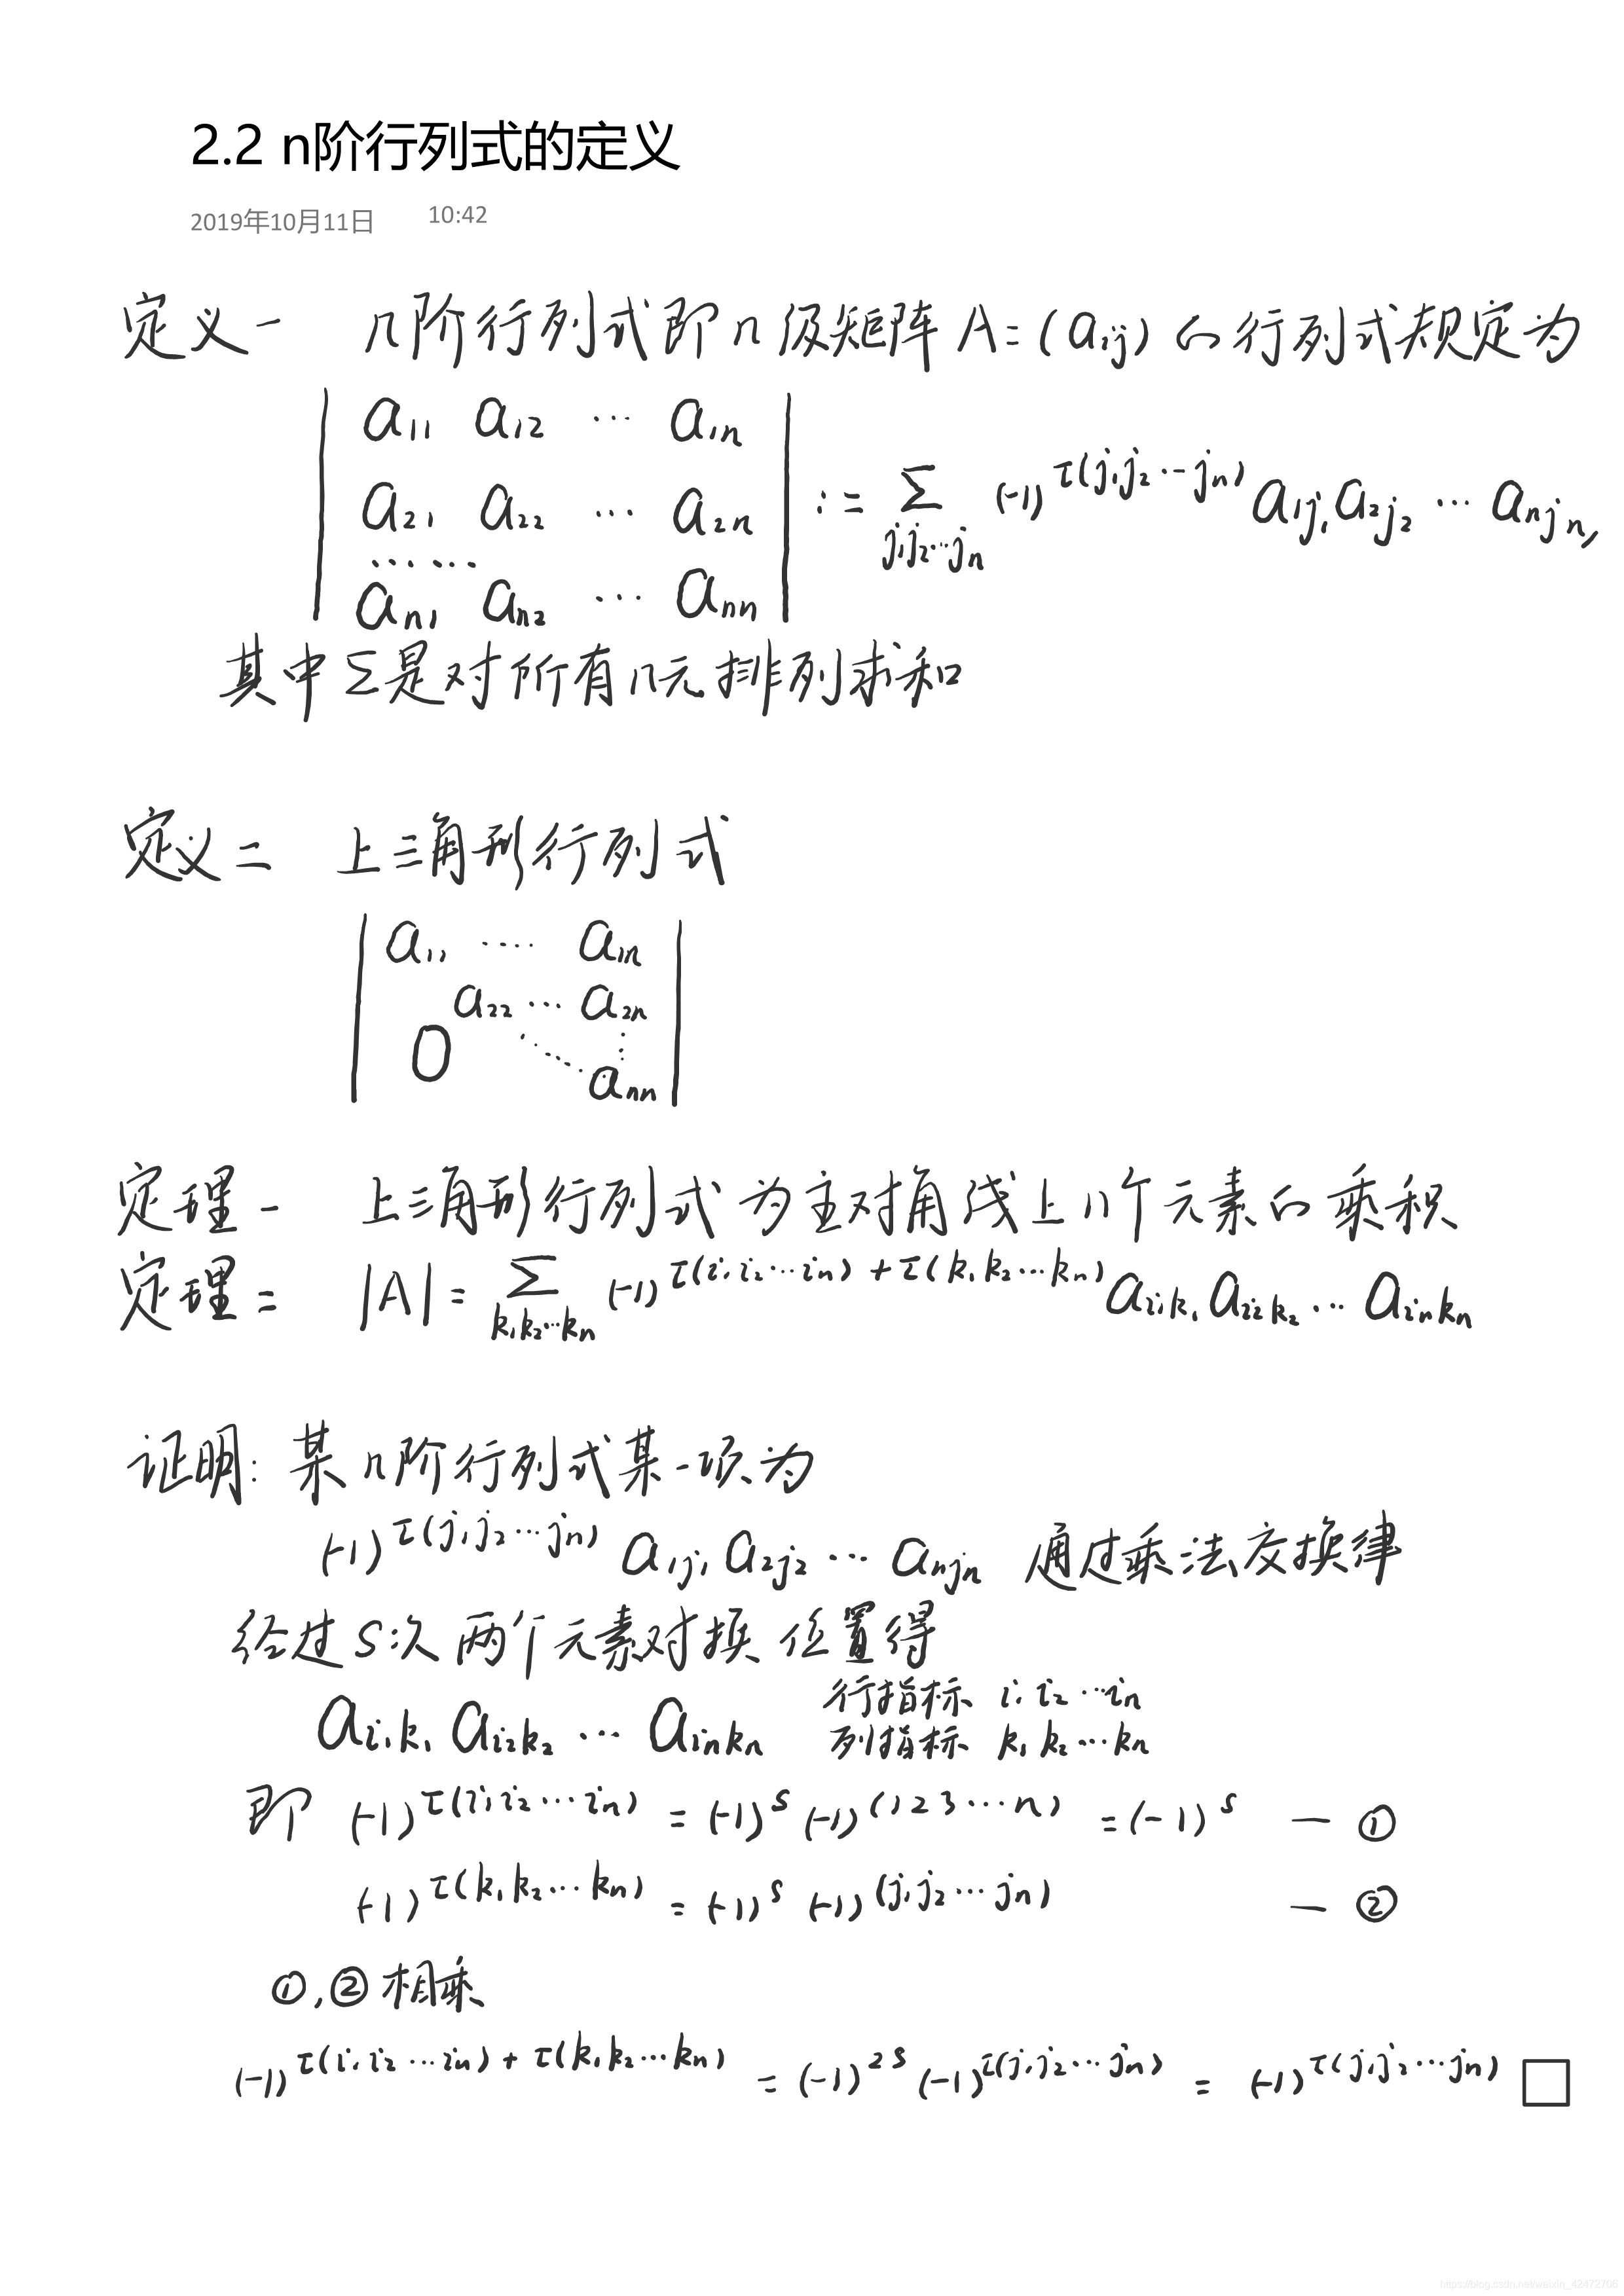 2.2 n阶行列式的定义
2019年10月11日 10:42
定义一 n阶行列式即n级矩阵 A=(aij) 的行列式规定为
| a11 a12 ··· a1n |
| a21 a22 ··· a2n | := Σ (-1)^τ(j1j2···jn) a1j1 a2j2 ··· anjn,
······ j1j2···jn
| an1 an2 ··· ann |
其中Σ是对所有n元排列求和
定义二 上三角形行列式
| a11 ···· a1n |
a22 ··· a2n
0
ann
定理一 上三角形行列式为主对角线上n个元素的乘积
定理二 |A| = Σ (-1)^τ(i1i2···in)+τ(k1k2···kn) ai1k1 ai2k2 ··· ainkn
k1k2···kn
证明: 某n阶行列式某一项为
(-1)^τ(j1j2···jn) a1j1 a2j2 ··· anjn 通过乘法交换律
经过S次两个元素对换位置得
ai1k1 ai2k2 ··· ainkn 行指标 i1 i2 ···in
列指标 k1 k2 ···kn
即 (-1)^τ(i1i2···in) = (-1)^s (-1)^(123···n) = (-1)^s — ①
(-1)^τ(k1k2···kn) = (-1)^s (-1)^(j1j2···jn) — ②
①,②相乘
(-1)^τ(i1i2···in)+τ(k1k2···kn) = (-1)^2s (-1)^τ(j1j2···jn) = (-1)^τ(j1j2···jn) □